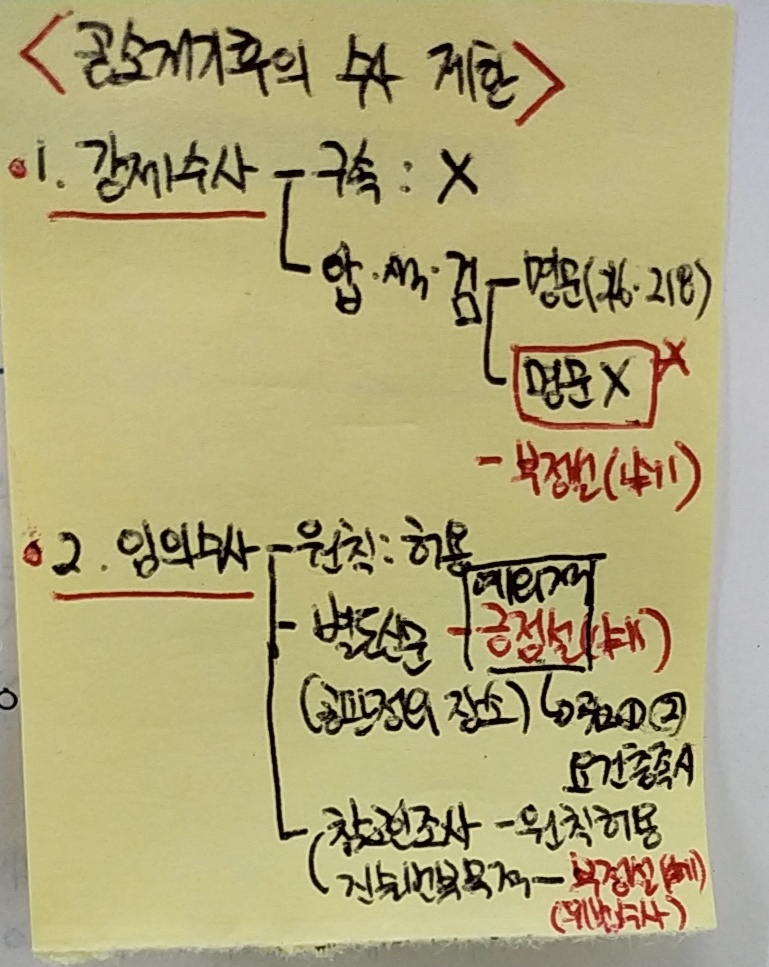 <공소제기후의 수사 제한>
1. 강제수사 - 구속 : X
압·색·검 - 명문(216·218)
명문 X X
- 부정설(判例)
2. 임의수사 - 원칙 : 허용
예외적
별도신문 - 긍정설(判例)
(공판정외 장소) ↳ ① ②
요건충족시
참고인조사 - 원칙허용
진술번복목적 - 부정설(判例)
(위법수사)